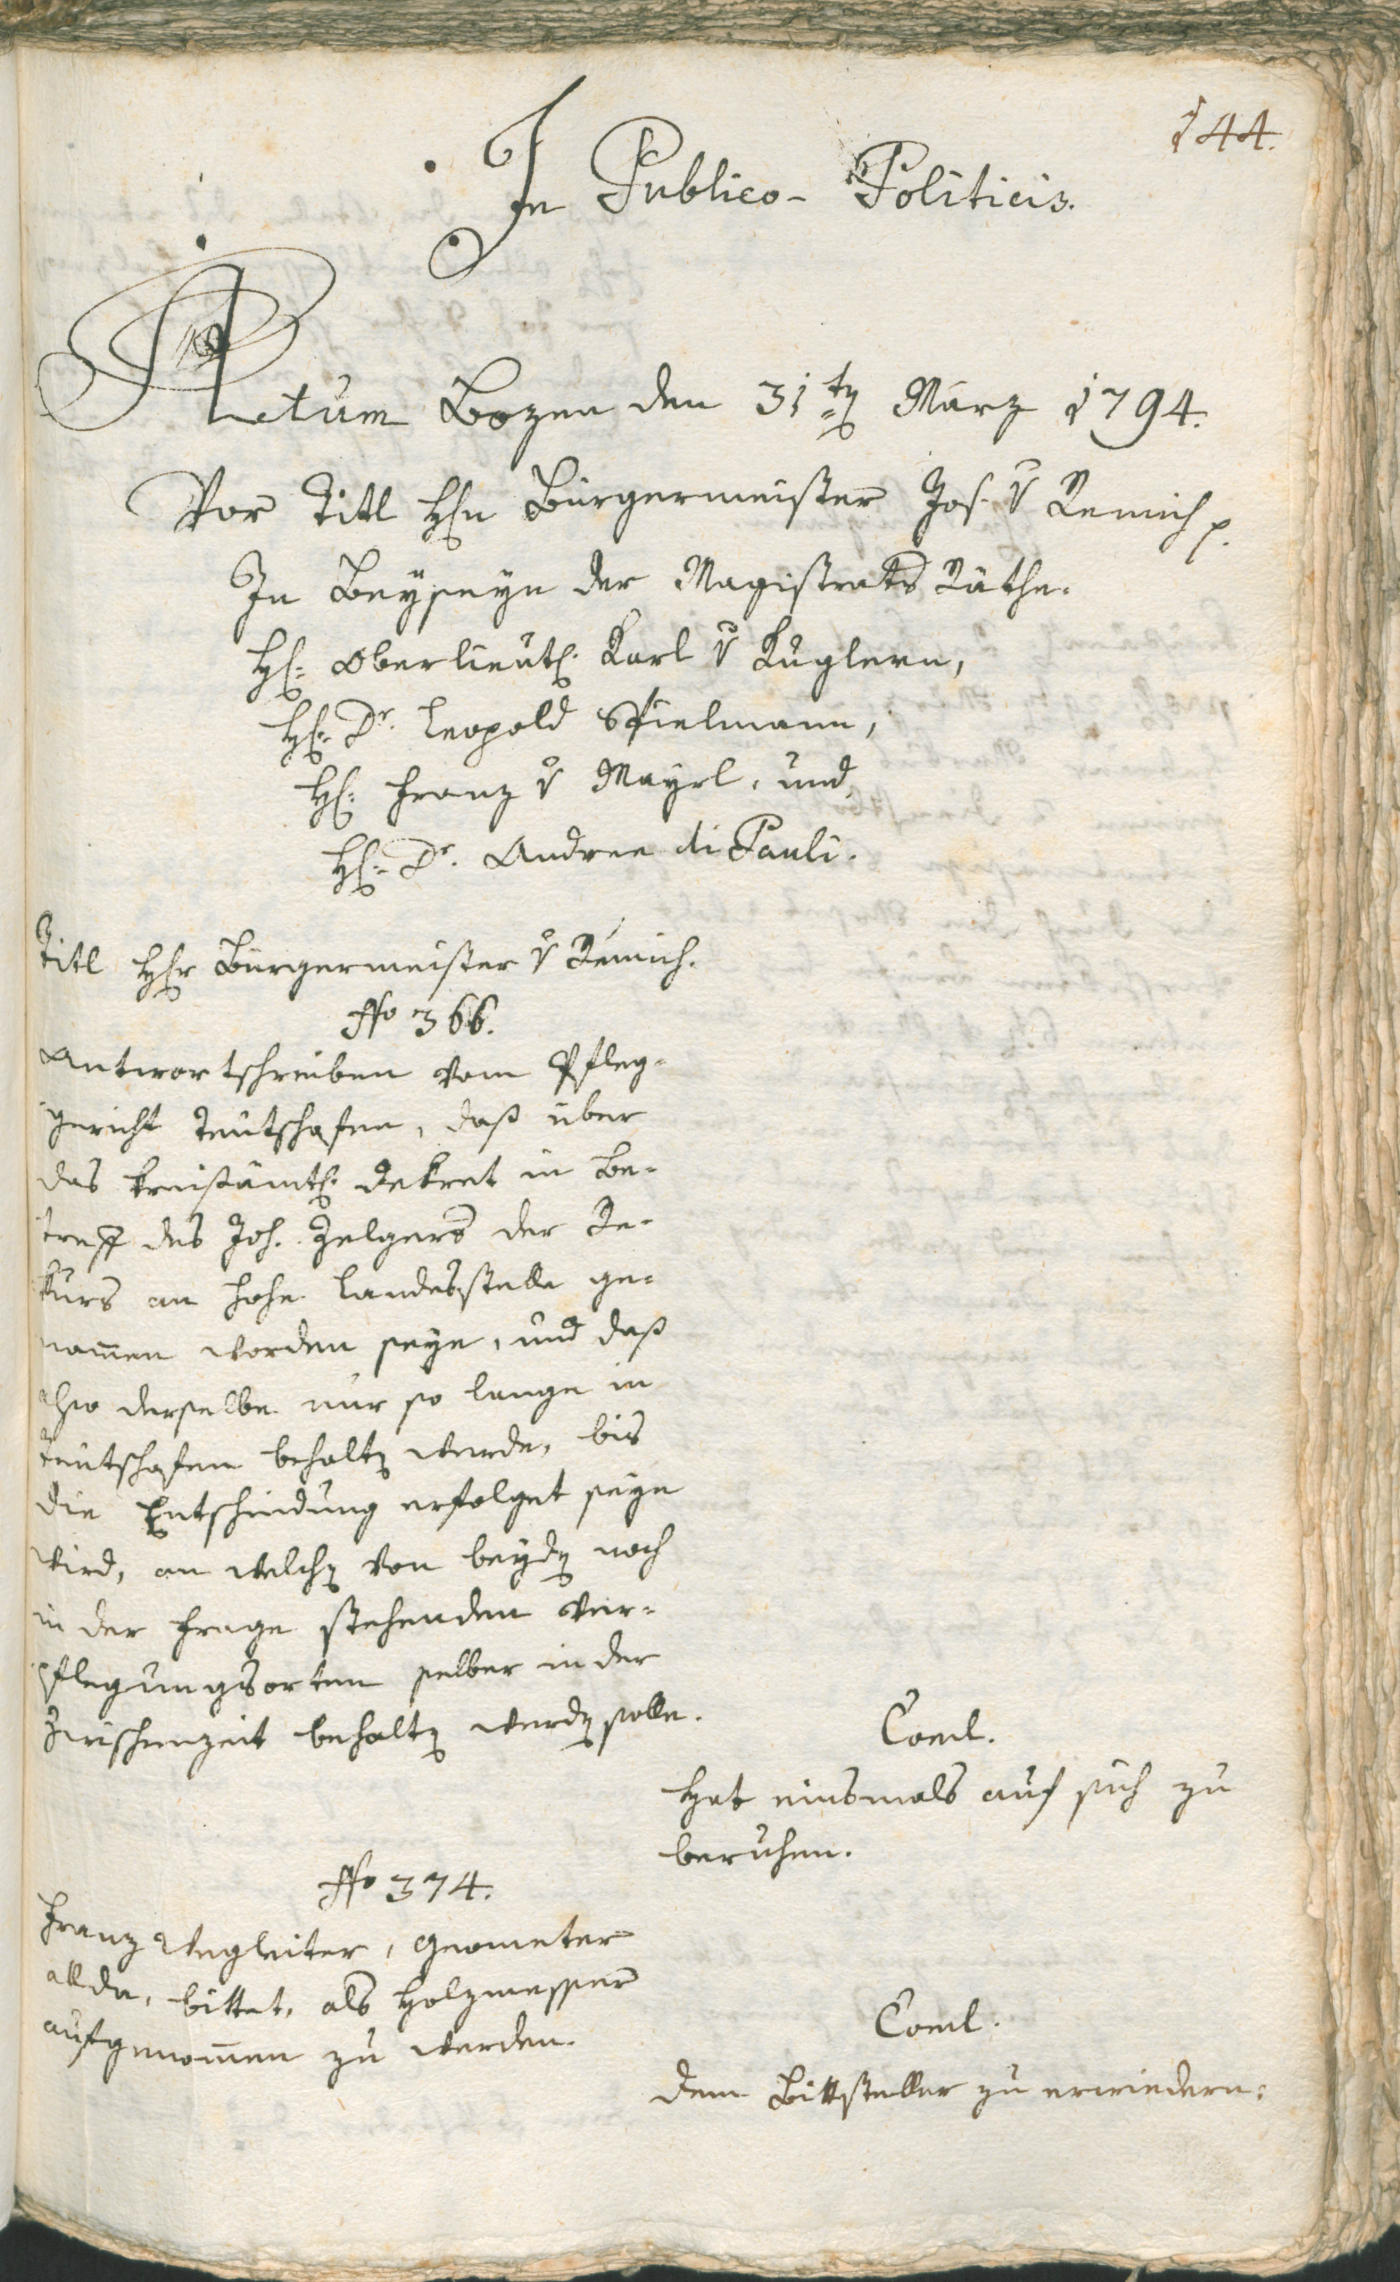 144.
In Publico-Politicis.
Actum Bozen den 31ten März 1794.
Vor Titl Hn Bürgermeister Jos. v Remich p.
In Beyseyn der Magistrats Räthe.
H: Oberlieut: Karl v Kuglern,
H: Dr. Leopold Spielmann,
H: Franz v Mayrl, und
H: Dr. Andree di Pauli.
Titl Hr Bürgermeister v Remich.
No 366.
Antwortschreiben vom Pfleg-
gericht Teutschofen, daß über
das kreisämtl: Dekret in Be-
treff des Joh. Zelgers der Re-
kurs an hohe Landesstelle ge-
nom̄en worden seye, und daß
also derselbe nur so lange in
Teutschofen behalten werde, bis
die Entscheidung erfolget seyn
wird, an welchen von beyden noch
in der Frage stehenden Ver-
pflegungsorten selber in der
Zwischenzeit behalten werden solle.
Concl.
Hat einsmals auf sich zu
beruhen.
No 374.
Franz Wegleiter, Geometer
allda, bittet, als Holzmesser
aufgenom̄en zu werden.
Concl.
Dem Bittsteller zu erwiedern: